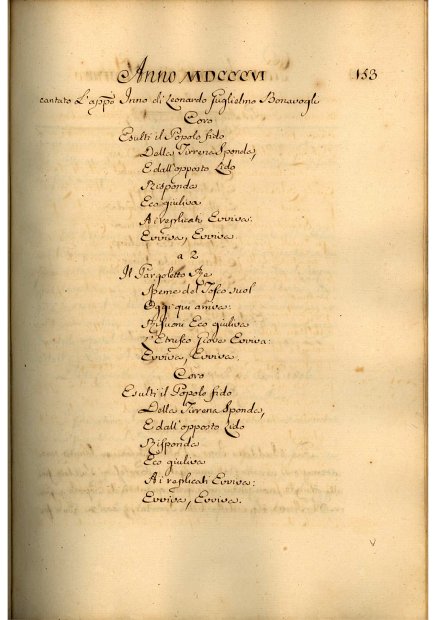 Anno MDCCCVI 153
cantato L'appo Inno di Leonardo Guglielmo Bonavogli
Coro
Esulti il Popolo fido
Della Tirrena Sponda,
E dall'opposto Lido
Risponda
Eco giuliva
Ai replicati Evviva:
Evviva, Evviva.
a 2
Il Pargoletto Re
Speme del Tosco suol
Oggi qui arriva:
Risuoni Eco giuliva
L'Etrusco Giove Evviva:
Evviva, Evviva.
Coro
Esulti il Popolo fido
Della Tirrena Sponda,
E dall'opposto Lido
Risponda
Eco giuliva
Ai replicati Evviva:
Evviva, Evviva.